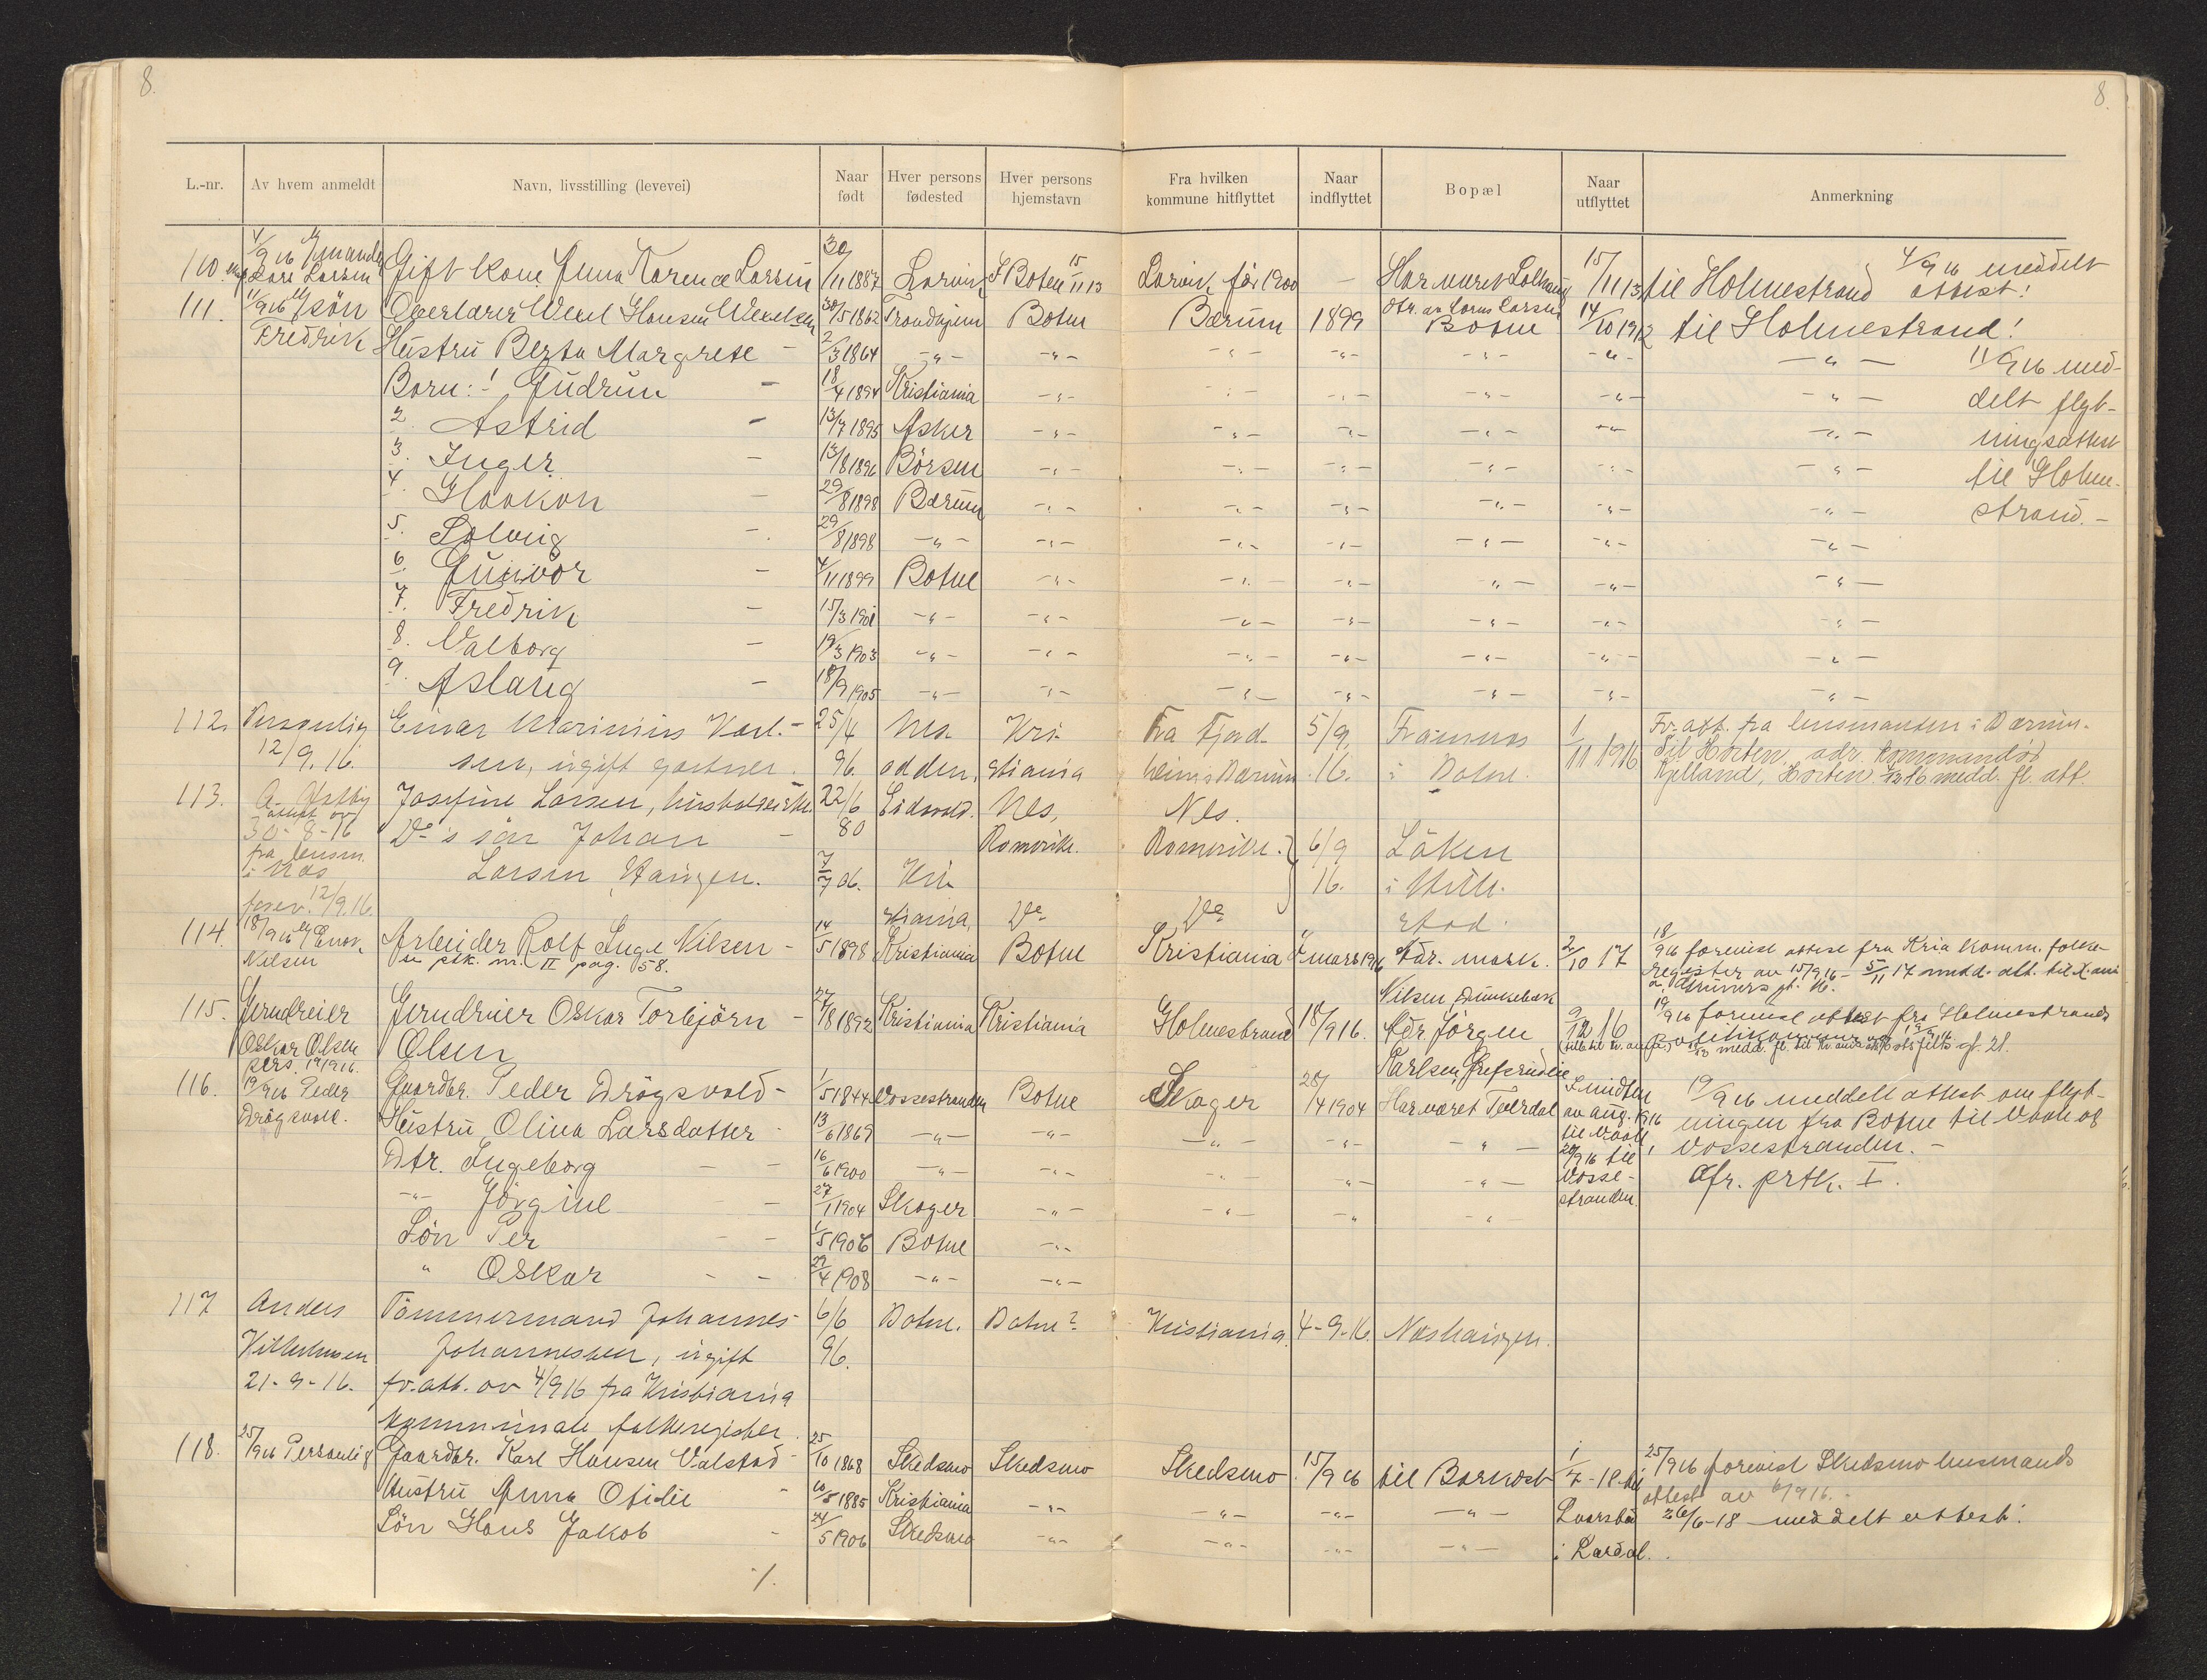 8. 8.
L.-nr. Av hvem anmeldt Navn, livsstilling (levevei) Naar født Hver persons fødested Hver persons hjemstavn Fra hvilken kommune hitflyttet Naar indflyttet Bopæl Naar utflyttet Anmerkning
110 4/9 16 v/ mand Lars Larsen Gift kone Anna Karen Larsen 30/11 1887 Larvik Botne 15/11 13 Larvik før 1900 — Har været 15/11 13 til Holmestrand 4/9 16 meddelt attest!
111. 11/9 16 v/ søn Fredrik Overlærer Wexel Hansen Wexelsen 30/5 1862 Trondhjem Botne Bærum 1899 Botne 14/10 1912 til Holmestrand!
Hustru Berta Margrete — 2/3 1864 -"- -"- -"- -"- -"- -"- -"- 11/9 16 med-
Born: 1 Gudrun — 18/4 1894 Kristiania -"- -"- -"- -"- -"- -"- delt flyt-
2. Astrid — 13/7 1895 Asker -"- -"- -"- -"- -"- -"- ningsattest
3. Inger — 13/8 1896 Børsen -"- -"- -"- -"- -"- -"- til Holme-
4. Haakon — 29/8 1898 Bærum -"- -"- -"- -"- -"- -"- strand. -
5. Solveig — 29/8 1898 -"- -"- -"- -"- -"- -"- -"-
6. Gunvor — 4/11 1899 Botne -"- -"- -"- -"- -"- -"-
7. Fredrik — 15/3 1901 -"- -"- -"- -"- -"- -"- -"-
8. Valborg — 19/3 1903 -"- -"- -"- -"- -"- -"- -"-
9. Aslaug — 18/9 1905 -"- -"- -"- -"- -"- -"- -"-
112. Personlig Einar Marinius Karl- 25/4 Nes Kri- Fra Fjord- 5/9 Framnes 1/11 1916 Fr. att. fra lensmanden i Bærum.
12/9. 16. sen, ugift gartner. 96. odden, stiania heim i Bærum 16. i Botne. til Horten, adr. kommandør
Kjelland, Horten. medd. fl. att.
113. A. Østby Josefine Larsen, husholderske 22/6 80 Eidsvold. Nes, Nes.
attest av 30-8-16 Do's søn Johan — Romerike. Romerike. 6/9 Løken
fra lensm. i Nes Larsen Haugen. 7/7 06. Kri- 16. i Hill-
forev. 12/9. 16. stiania, Do Do stad.
114. 18/9 16 v/ Enok Nilsen Arbeider Rolf Inge Nilsen — 14/5 1898 Kristiania Botne Kristiania mars 1916 Adr. mask. 2/10 17 18/9 16 forevist attest fra Kria komm. folke-
se ptk. nr. II pag. 58. Nilsen register av 15/9 16 - 5/11 17 medd. att. til
115. Jerndreier Oskar Olsen pers. 19/9 16. Jerndreier Oskar Torbjörn — 27/8 1892 Kristiania Kristiania Holmestrand 18/9 16. Adr. Jörgen 9/12 16 19/9 16 forevist attest fra Holmestrands
Olsen Karlsen,
116. 19/9 16 Peder Drøgsvold. Gaardbr. Peder Drøgsvold — 1/5 1844 Vossestranden Botne Skoger 28/4 1904 Har været Tverdal av aug. 1916 19/9 16 meddelt attest om flyt-
Hustru Olina Larsdatter - 13/6 1869 -"- -"- -"- -"- -"- til Vaale, ningen fra Botne til Vaale og
Dtr. Ingeborg — — 16/6 1900 -"- -"- -"- -"- -"- 20/9 16 til Vossestranden. -
-"- Jörgine — — 27/1 1904 Skoger -"- -"- -"- -"- Vosse- Cfr. prtk. I.
Søn Per — — 1/5 1906 Botne -"- stranden.
" Oskar — — 29/4 1908 -"- -"-
117 Anders Tømmermand Johannes 6/6 Botne. Botne? Kristiania 4-9-16. Neshaugen.
Vilhelmsen Johannessen, ugift 96.
21-9-16. fr. att. av 4/9 16 fra Kristiania
kommunale folkeregister.
118. 25/9 16 Personlig Gaardbr. Karl Hansen Valstad 25/10 1868 Skedsmo Skedsmo Skedsmo 15/9 16 til Barkost 1/7-18 til 25/9 16 forevist Skedsmo lensmands
Hustru Anna Otidie - 10/5 1885 Kristiania -"- -"- -"- -"- attest av 6/9 16. -
Søn Hans Jakob - 24/5 1906 Skedsmo -"- -"- -"- -"- i Lardal. 26/6-18 meddelt attest!
./.